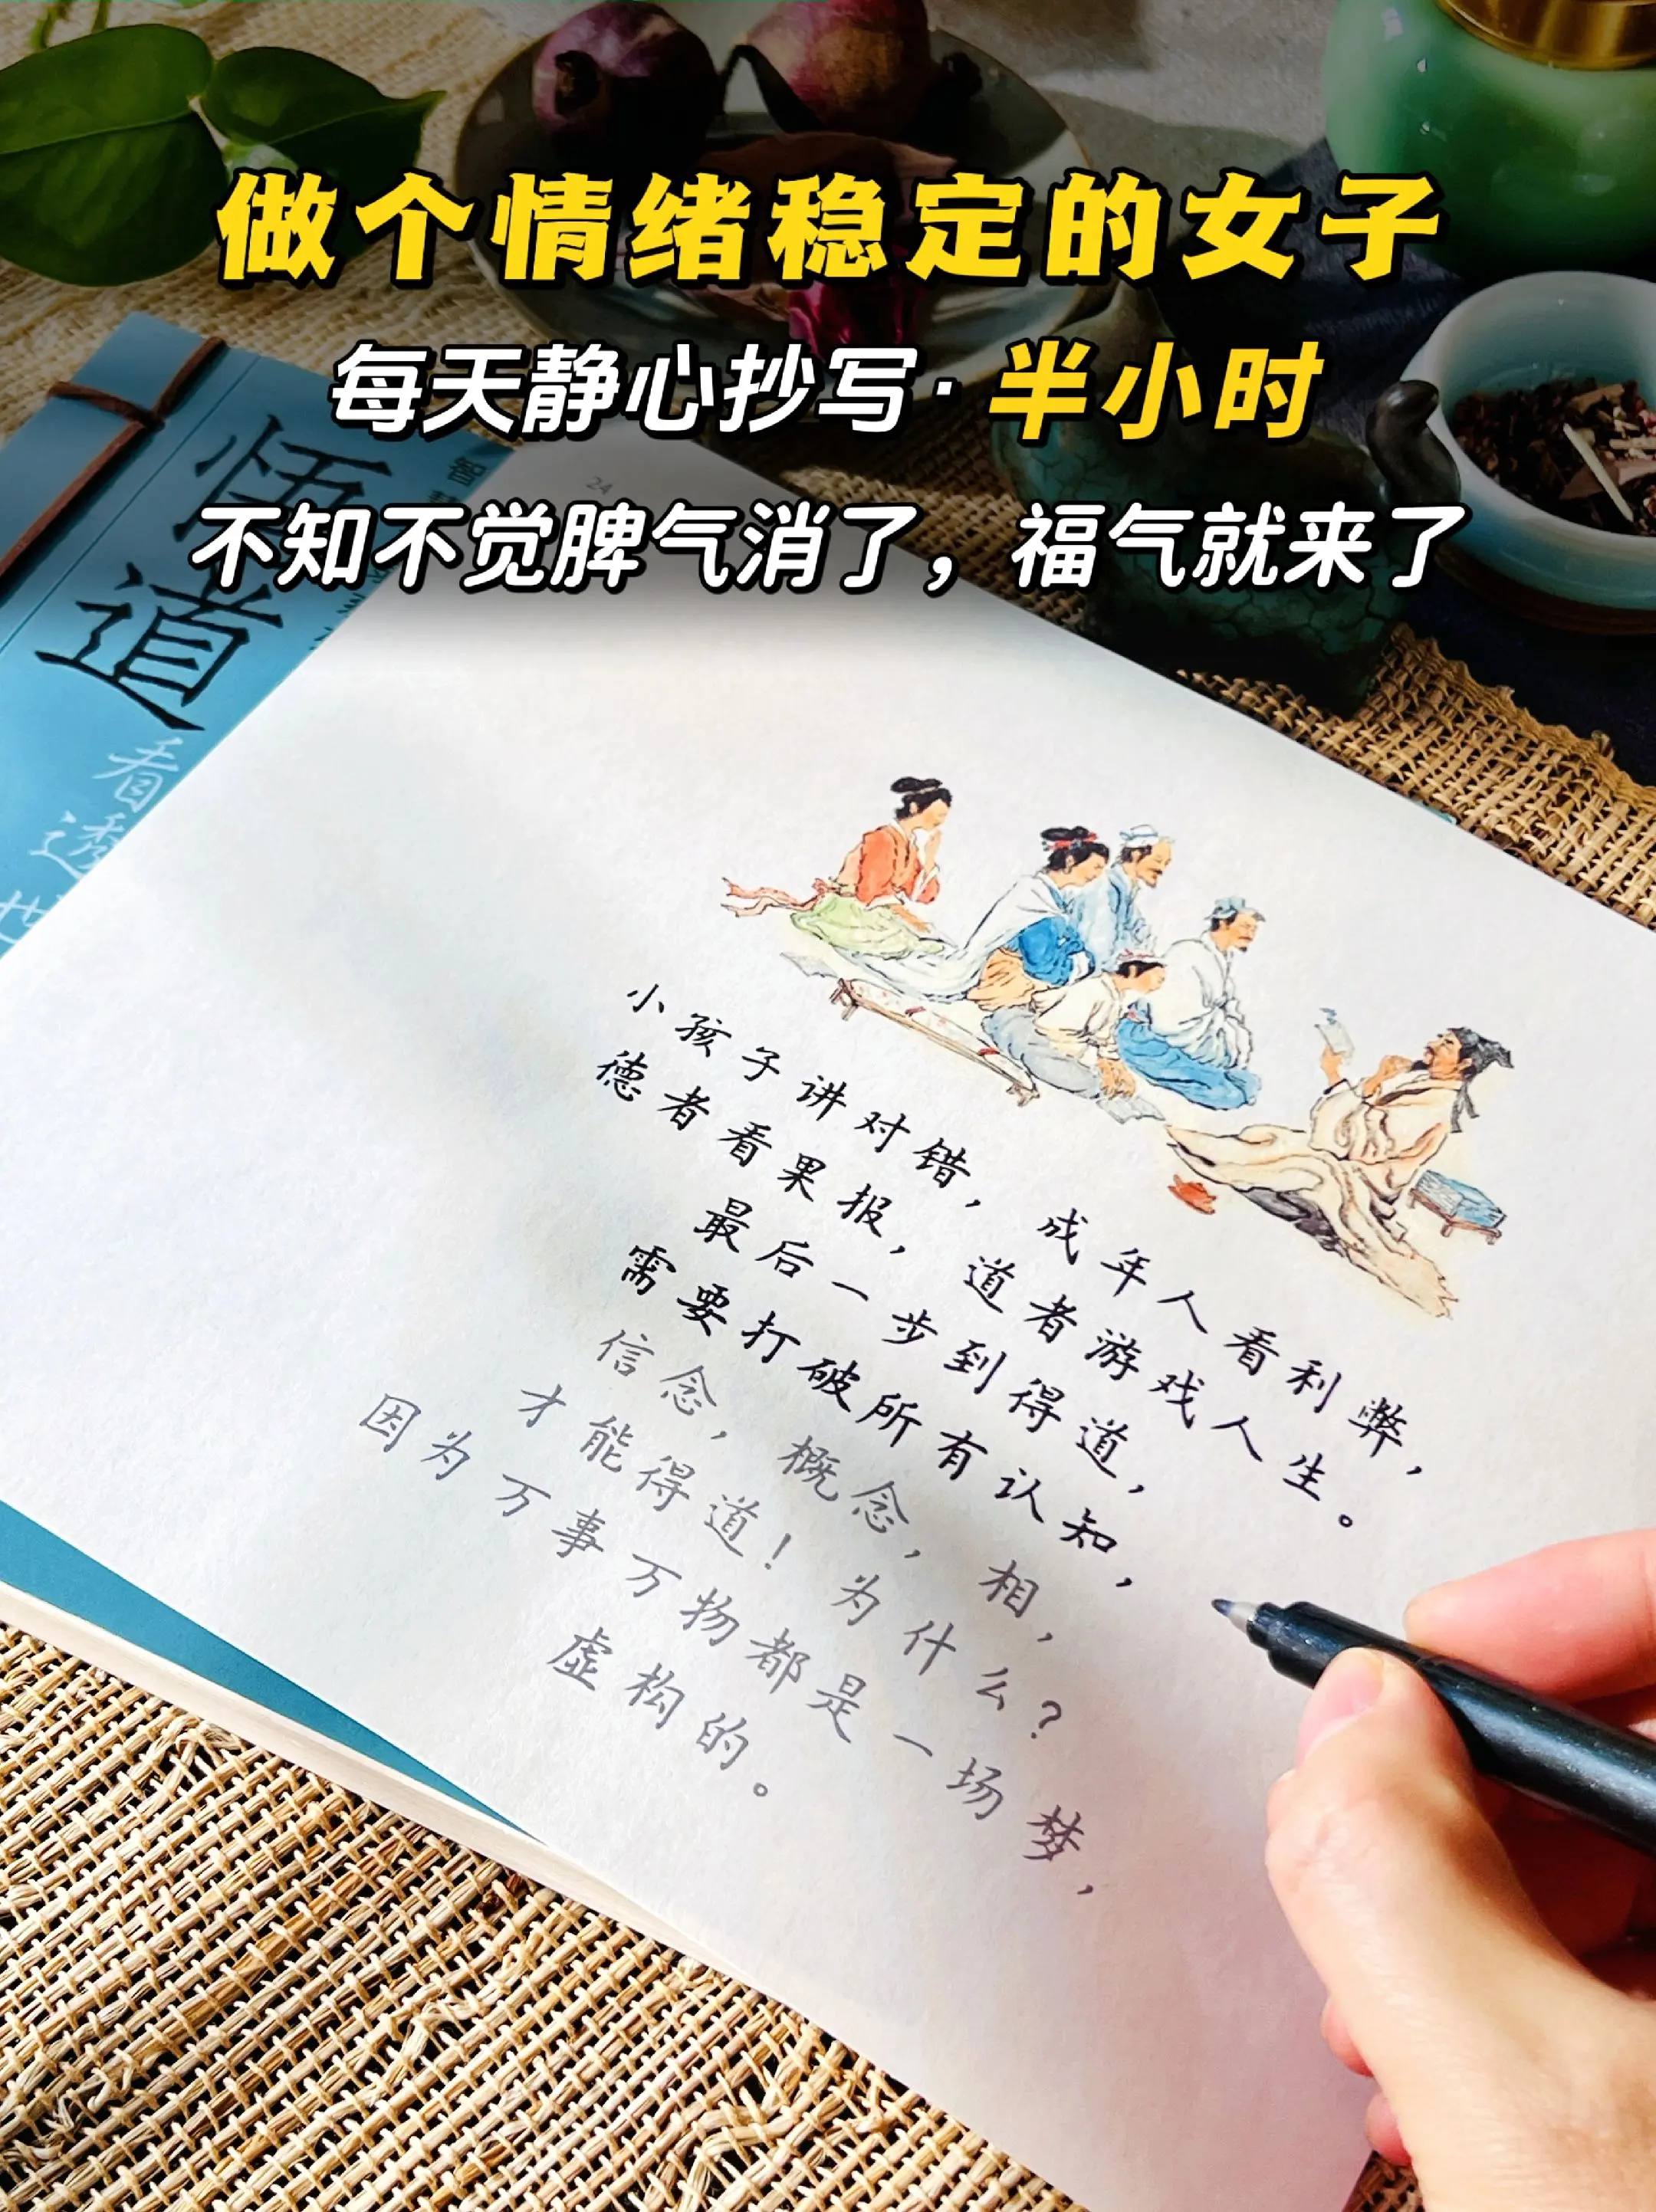 做个情绪稳定的女子
每天静心抄写·半小时
不知不觉脾气消了，福气就来了
24
悟道
智
看透
小孩子讲对错，成年人看利弊，
德者看果报，道者游戏人生。
最后一步到得道，
需要打破所有认知，
信念，概念，相，
才能得道！为什么？
因为万事万物都是一场梦，
虚构的。